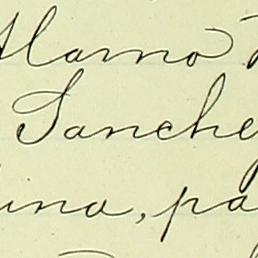 Alamo
Sanche
una, pa